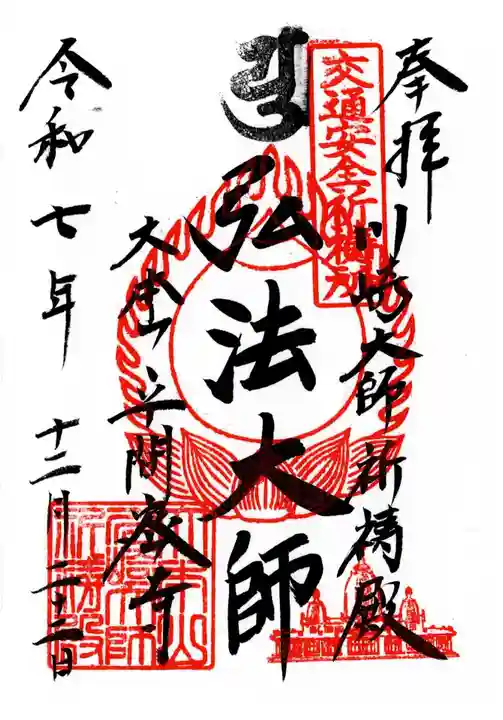 奉拝
川崎大師祈祷殿
交通安全祈祷所
弘法大師
大本山平間寺
令和七年
十二月二十二日